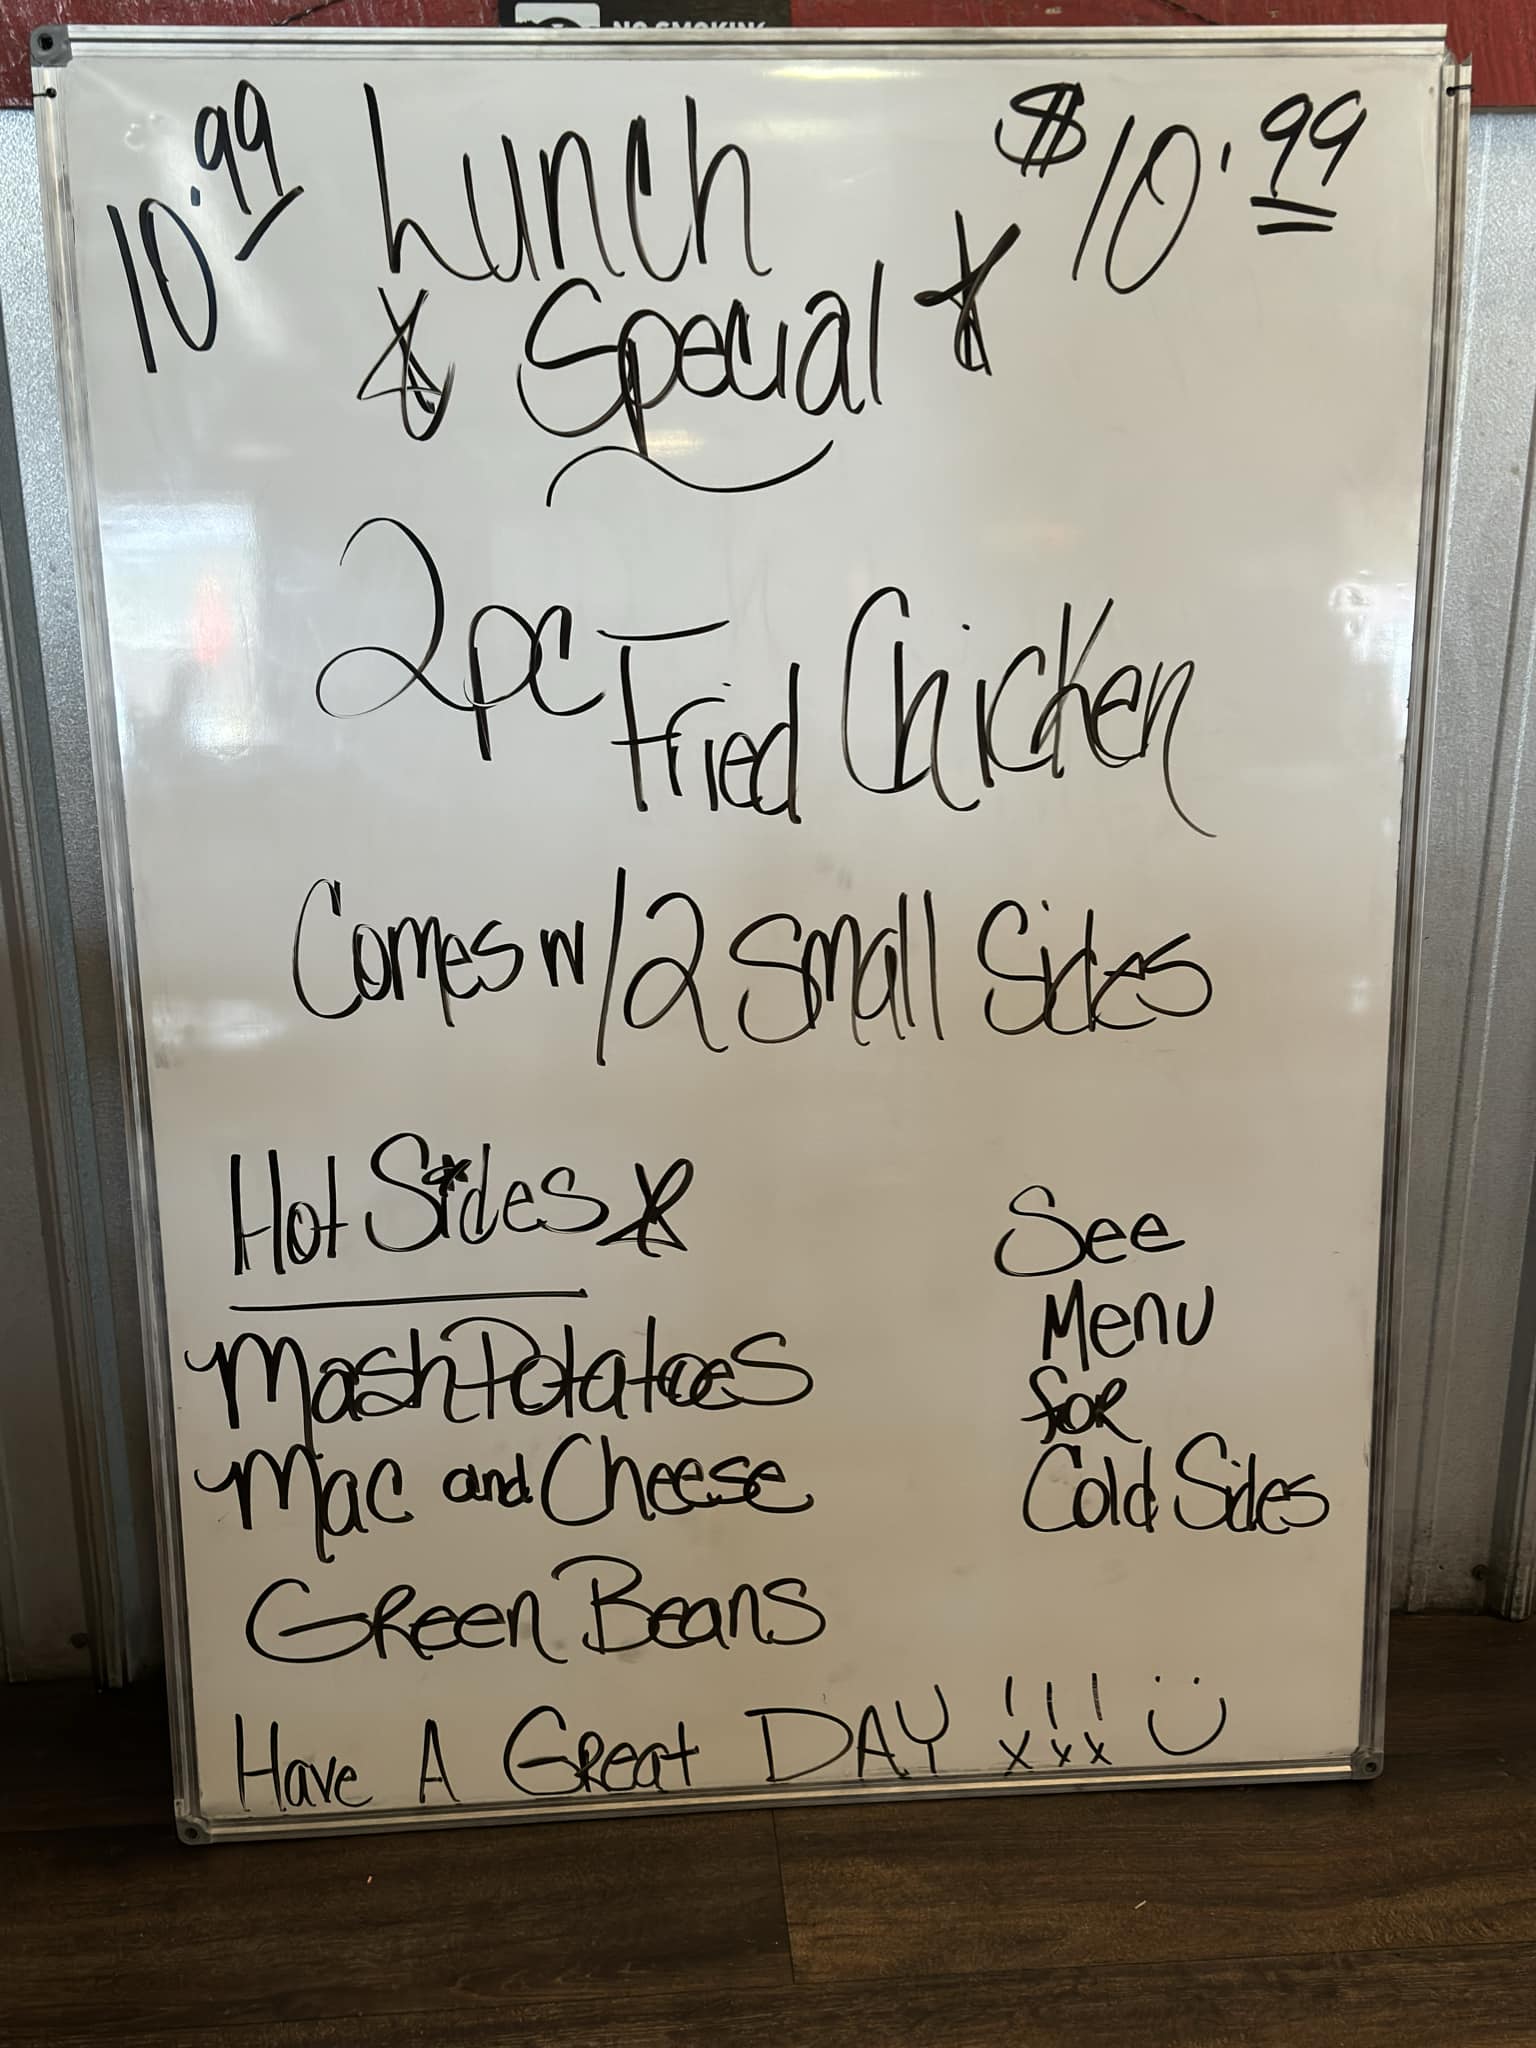 NO SMOKING
10.99 Lunch $10.99
Special
2pc Fried Chicken
Comes w/2 Small Sides
Hot Sides
Mash Potatoes
Mac and Cheese
Green Beans
See
Menu
for
Cold Sides
Have A Great DAY !!! :)